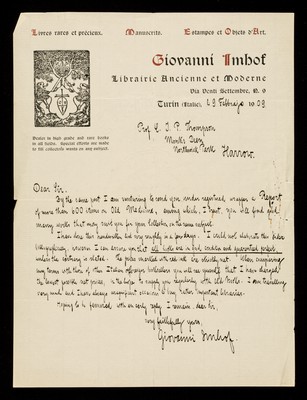 Livres rares et précieux. Manuscrits. Estampes et Objets d'Art.
Giovanni Imhof
Librairie Ancienne et Moderne
Via Venti Settembre, N. 9
Turin (Italie), 1909
Dealer in high grade and rare books
in all fields. Special efforts are made
to fill collectors wants on any subject.
Prof. Thompson
Harrow.
Dear Sir,
By the same post I am venturing to send you under registered wrapper a Report
of more than 600 items on Old Medicine, among which, I trust, you will find
many works that may suit you for your collection on the same subject.
I have done this handwritten list very rapidly in a few days. I could not
bibliographically, however I can assure you that all lots are in good condition and guaranteed perfect,
unless the contrary is stated. The prices marked with red ink are strictly net. When comparing
my terms with those of other Italian offerers booksellers you will see yourself that I have charged
the lowest possible net prices, in the hope to supply you regularly with old books. I am travelling
very much and I have always magnificent occasions to buy entire important libraries.
Hoping to be favoured with an early reply I remain, dear Sir,
very faithfully yours,
Giovanni Imhof.